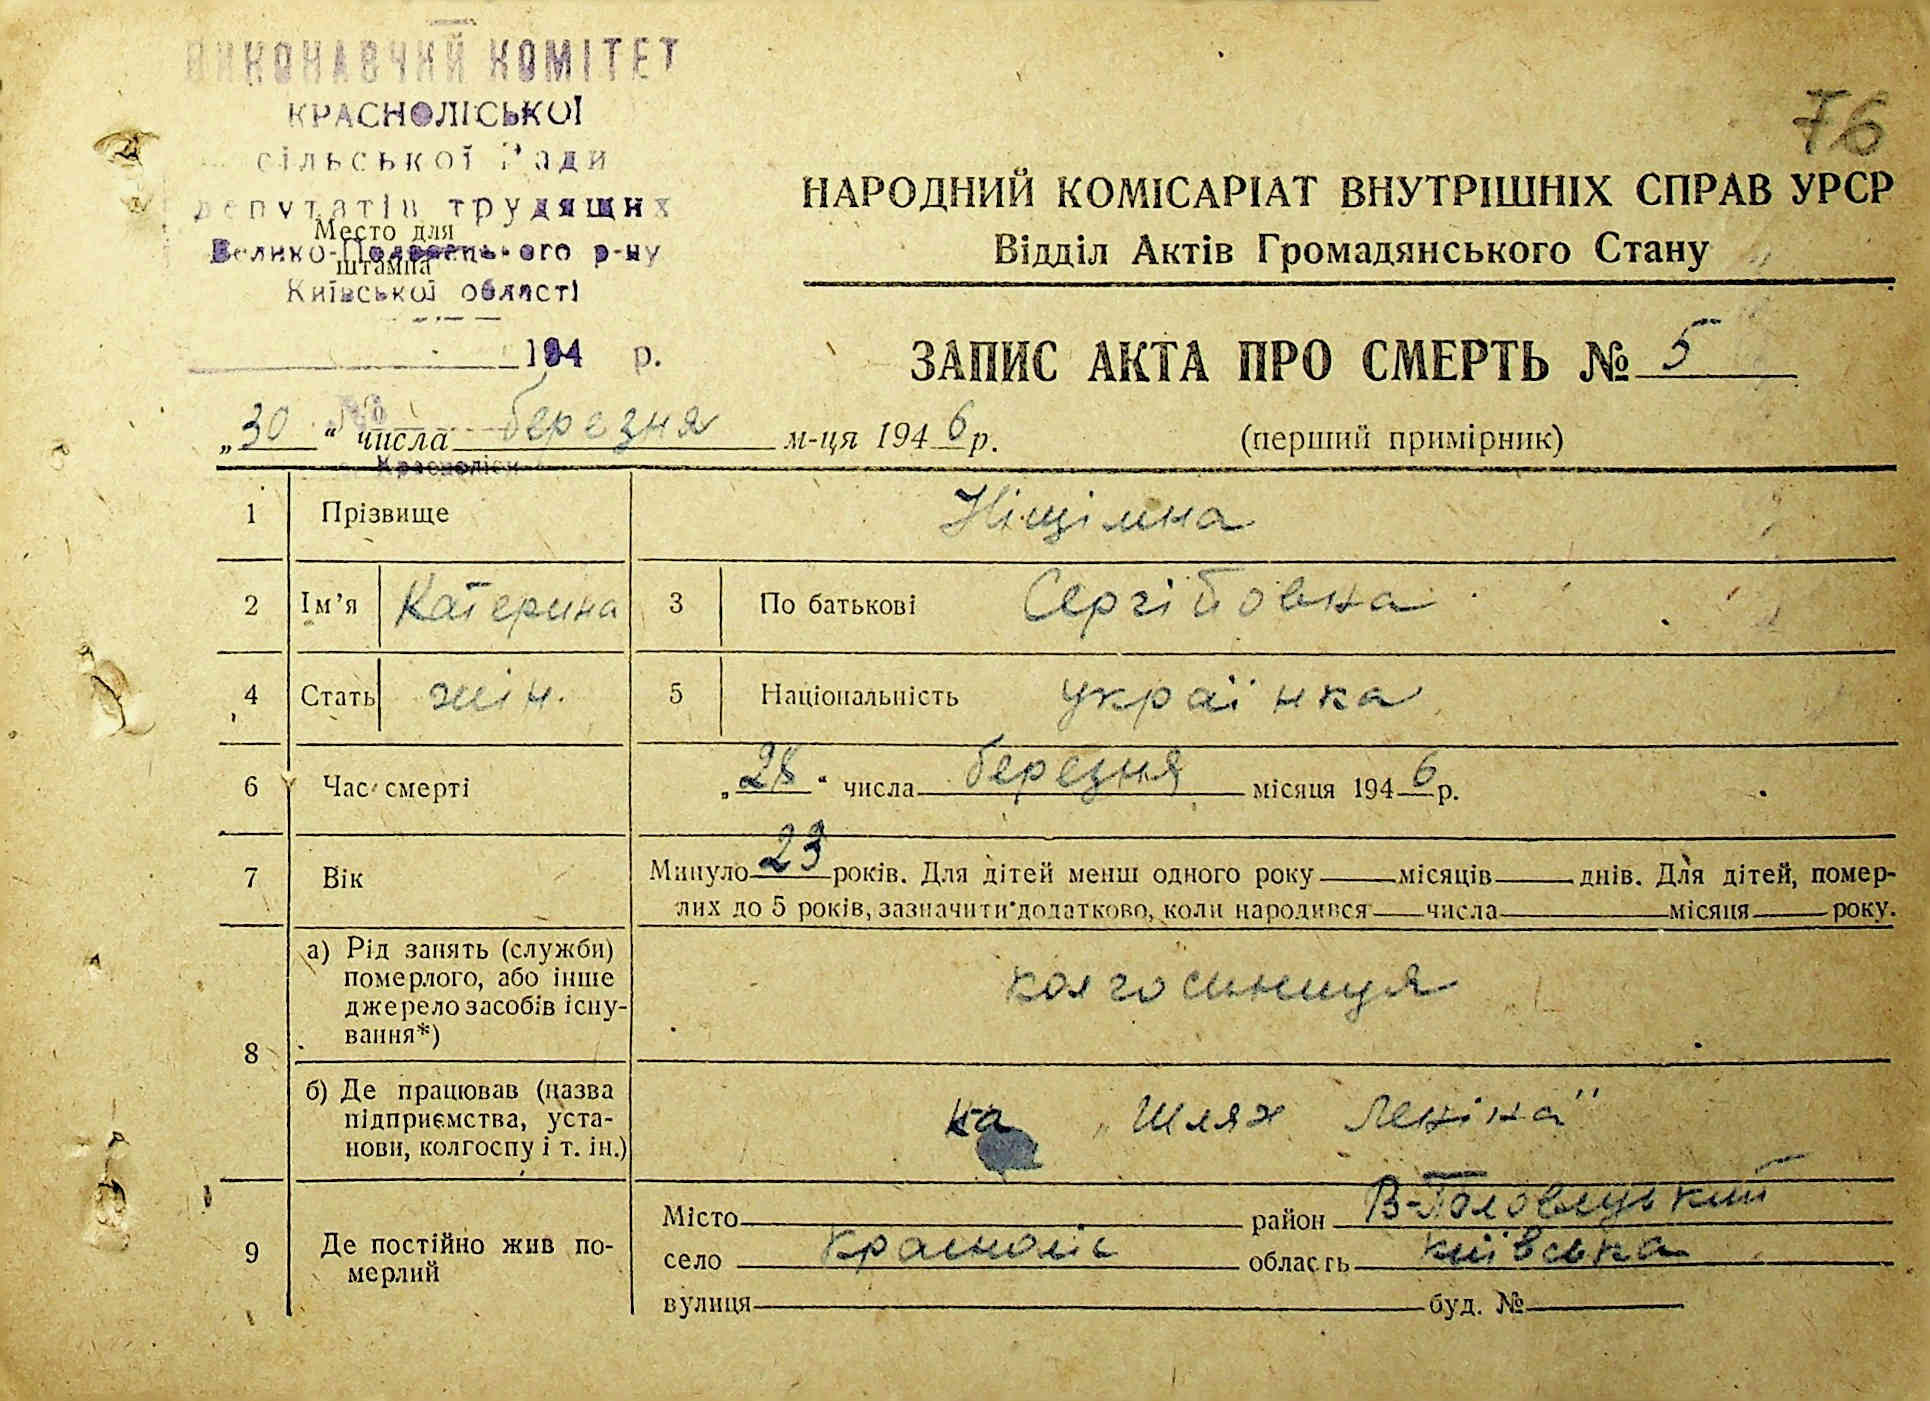 ВИКОНАВЧИЙ КОМІТЕТ
КРАСНОЛІСЬКОЇ
сільської Ради
депутатів трудящих
Место для
Велико-Половець-ого р-ну
штампа
Київської області
194 р.
76
НАРОДНИЙ КОМІСАРІАТ ВНУТРІШНІХ СПРАВ УРСР
Відділ Актів Громадянського Стану
ЗАПИС АКТА ПРО СМЕРТЬ № 5
„30“ числа березня м-ця 1946 р.
(перший примірник)
1 Прізвище Ніщімна
2 Ім’я Катерина 3 По батькові Сергійовна
4 Стать жін. 5 Національність українка
6 Час смерті „28“ числа березня місяця 1946 р.
7 Вік Минуло 23 років. Для дітей менш одного року місяців днів. Для дітей, помер-
лих до 5 років, зазначити додатково, коли народився числа місяця року.
8 а) Рід занять (служби)
померлого, або інше
джерело засобів існу-
вання*)
колгоспниця
б) Де працював (назва
підприємства, уста-
нови, колгоспу і т. ін.)
на „Шлях Леніна"
9 Де постійно жив по-
мерлий
Місто район В-Половецький
село Красноліс область київська
вулиця буд. №